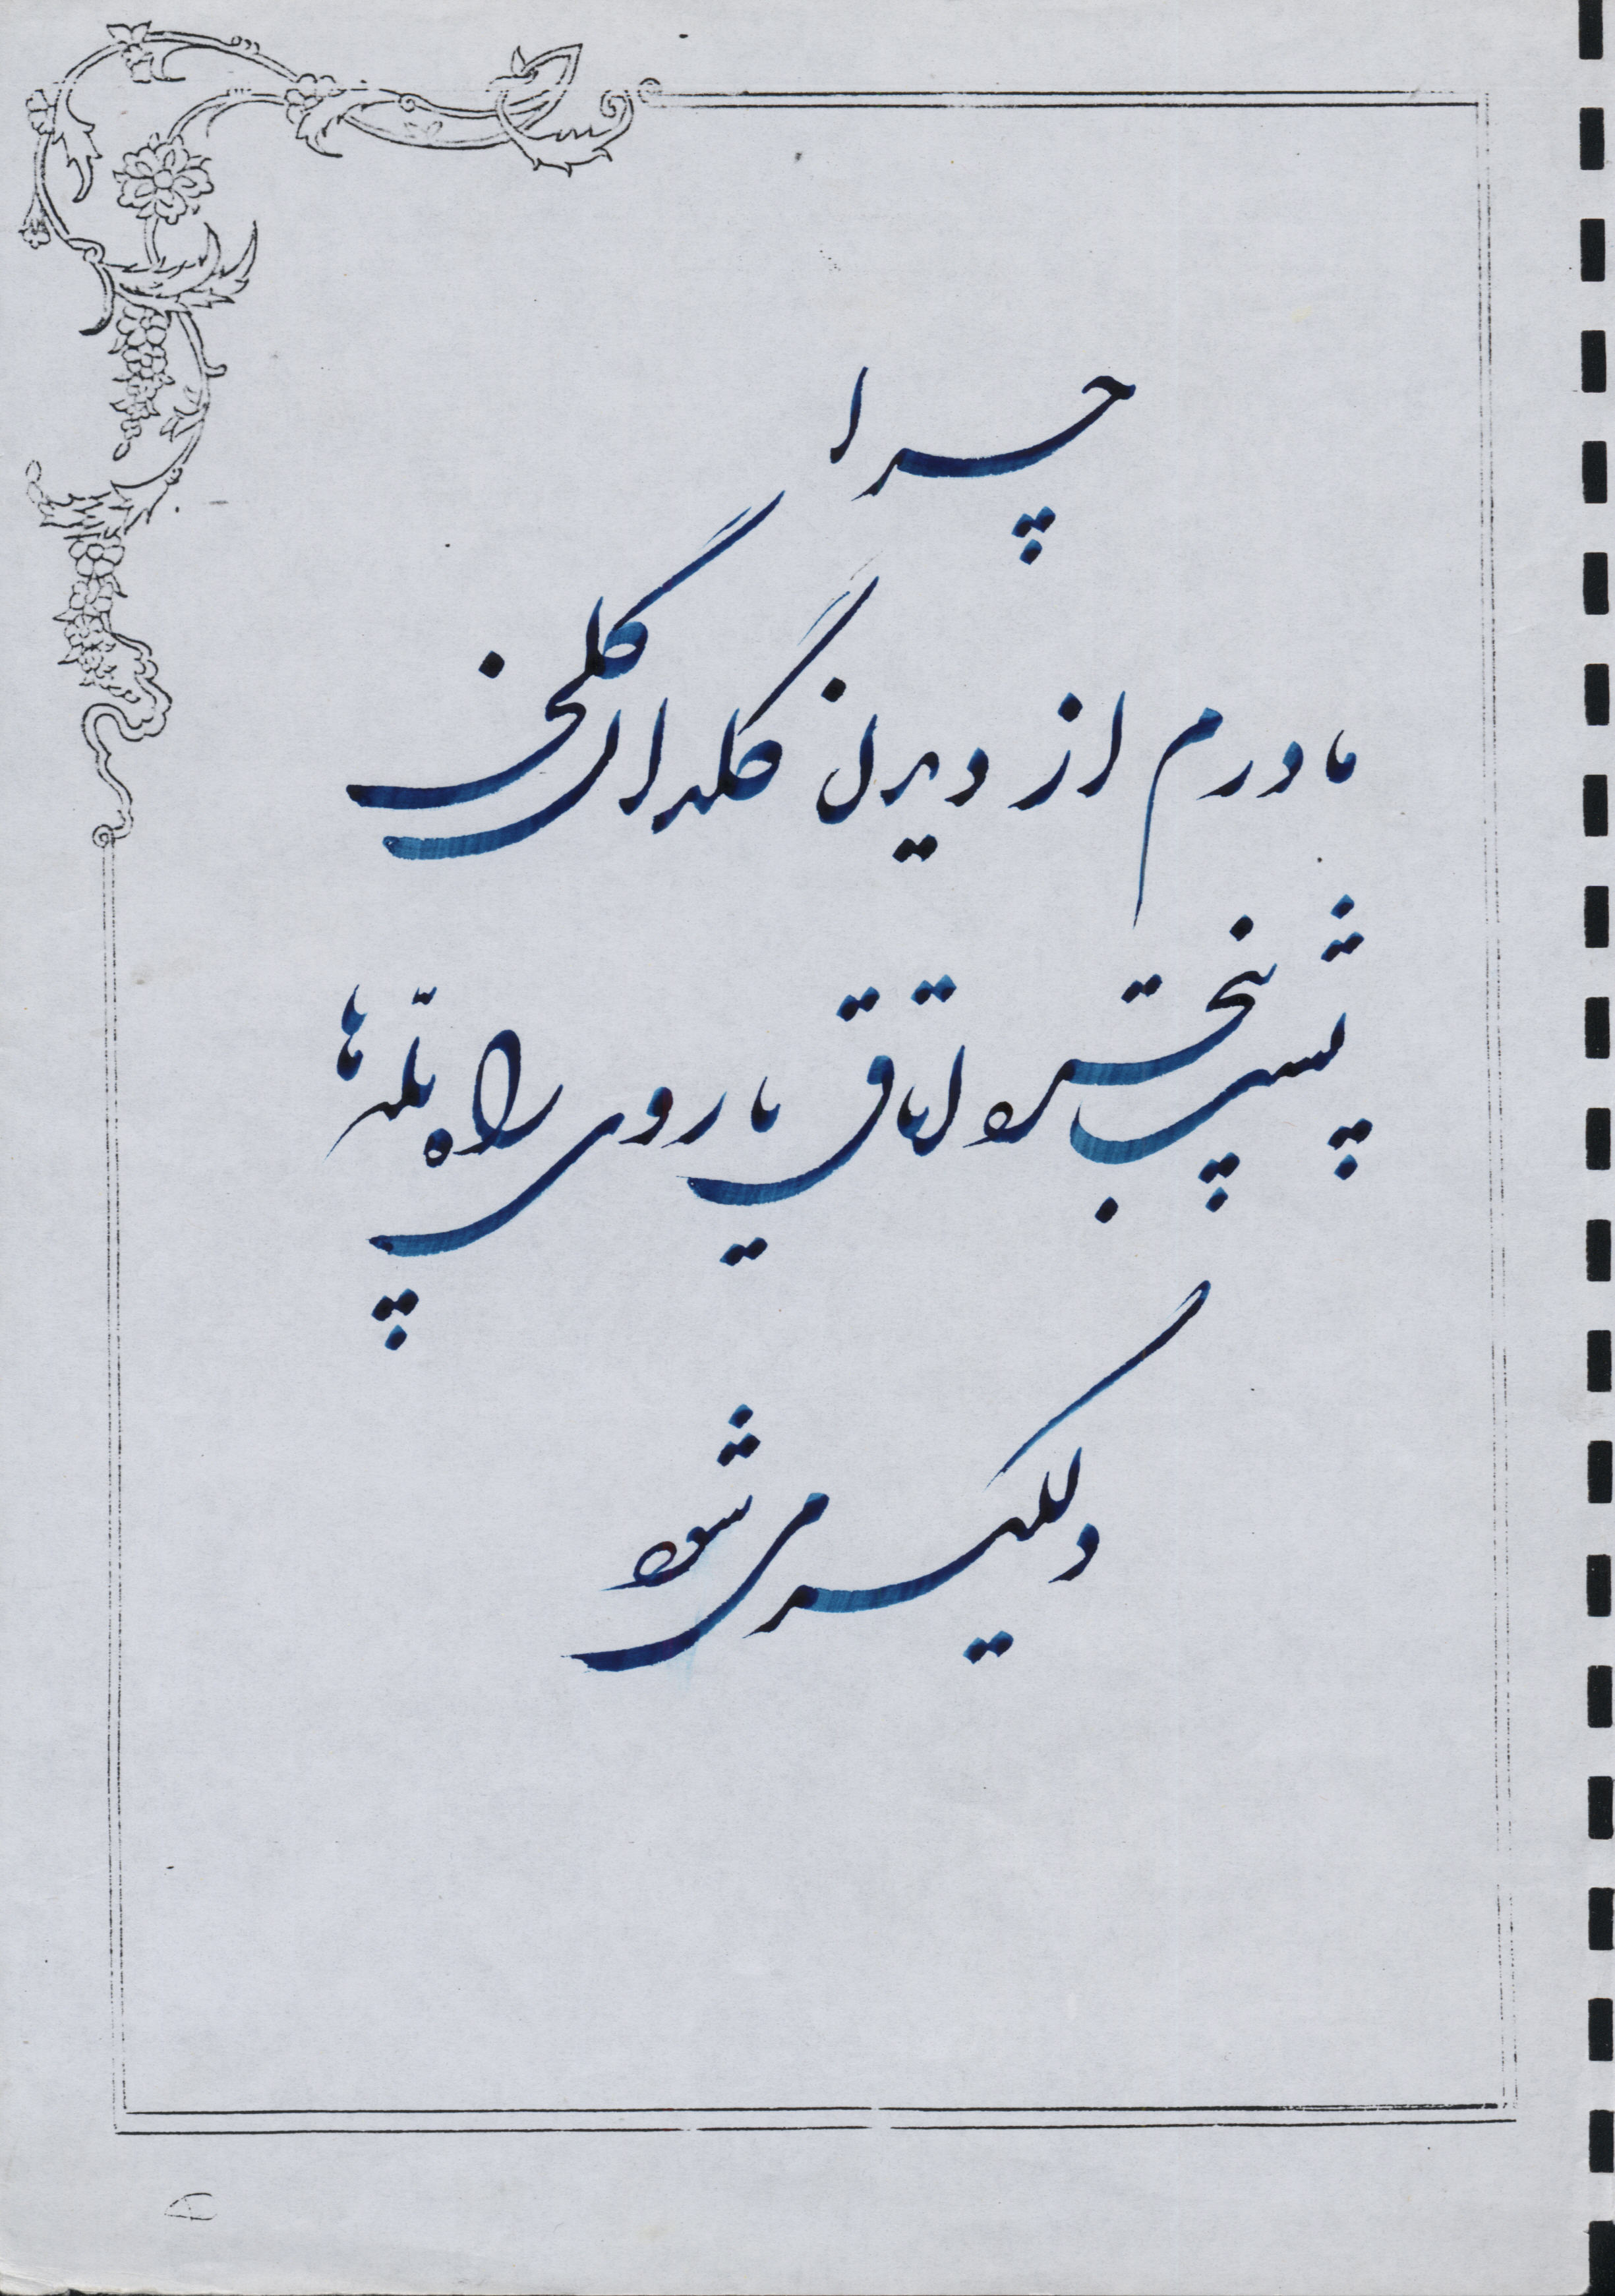 چرا
مادرم از دیدن گلدان
پشت پنجره اتاق یا روی راه پلّه ها
دلگیر می شود